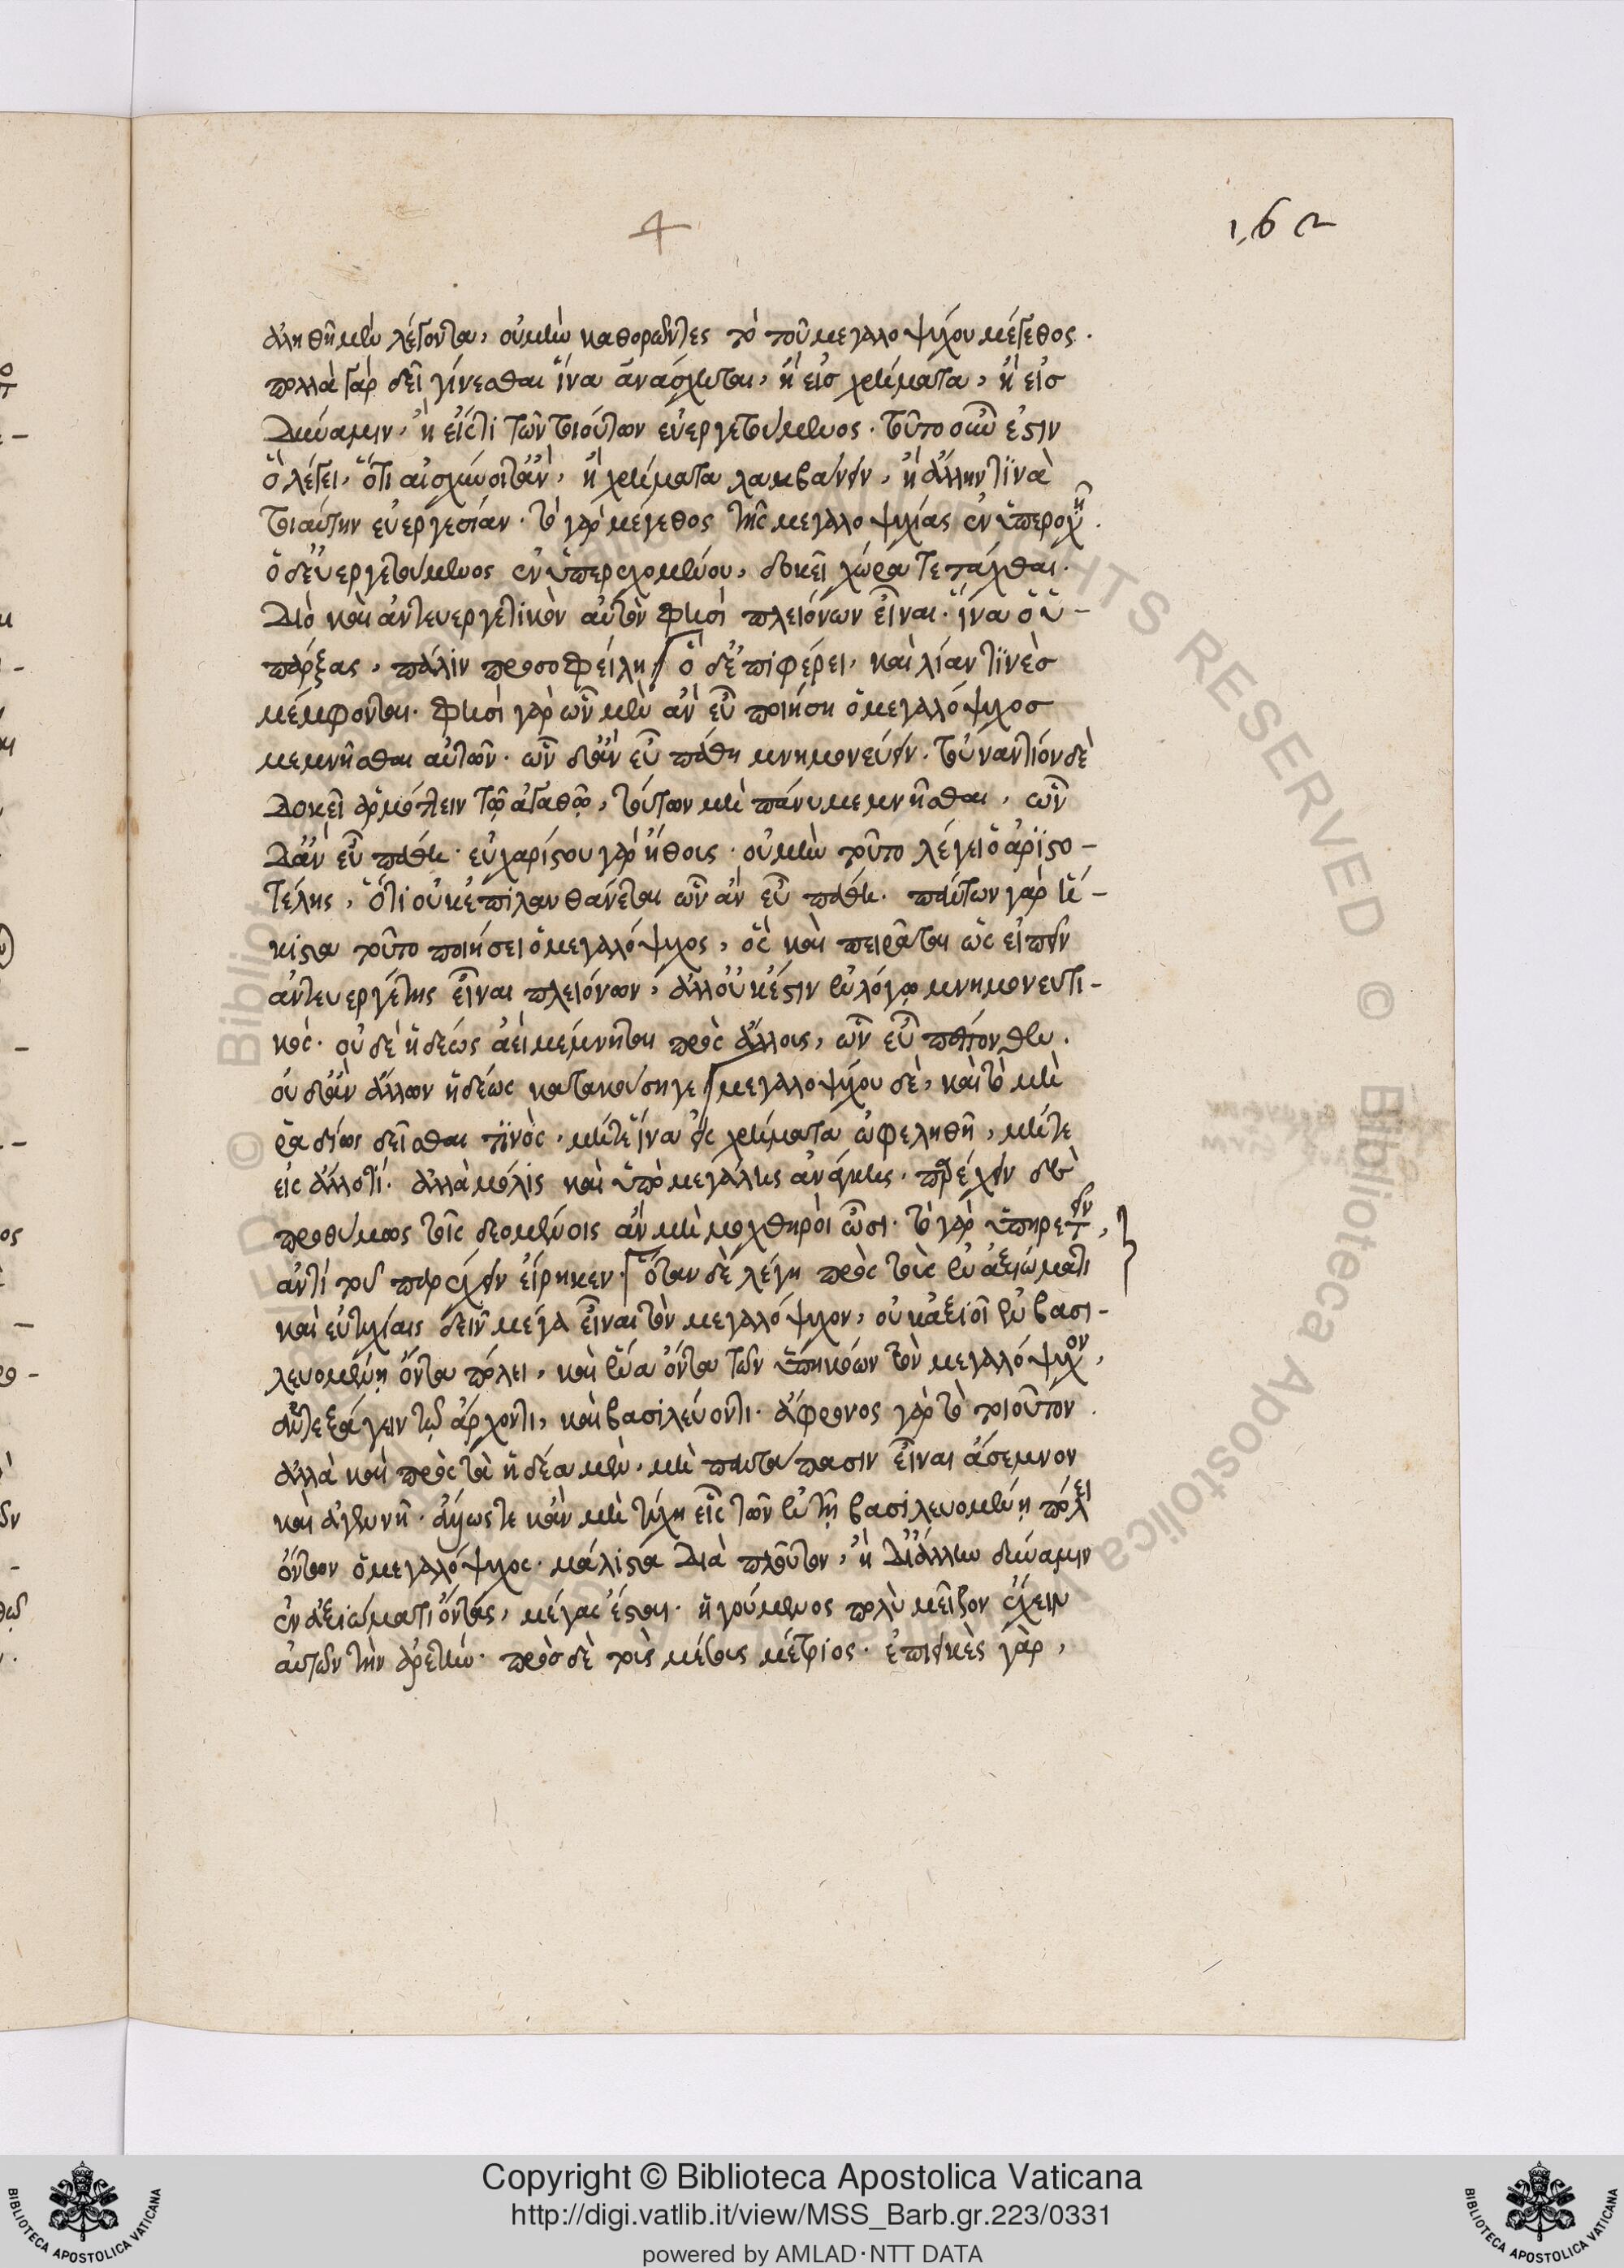 4
162
ἀληθῆ μὲν λέγονται, οὐ μὴν καθορῶντες τὸ τοῦ μεγαλοψύχου μέγεθος.
πολλὰ γὰρ δεῖ γίνεσθαι ἵνα ἀνάσχηται, ἢ εἰς χρήματα, ἢ εἰς
δύναμιν, ἢ εἴς τι τῶν τοιούτων εὐεργετούμενος. τοῦτο οὖν ἐστιν
ὃ λέγει, ὅτι αἰσχύνοιτ' ἂν, ἢ χρήματα λαμβάνειν, ἢ ἄλλην τινὰ
τοιαύτην εὐεργεσίαν. τὸ γὰρ μέγεθος τῆς μεγαλοψυχίας ἐν ὑπεροχῇ.
ὁ δ' εὐεργετούμενος ἐν ὑπερεχομένου, δοκεῖ χώρα τετάχθαι.
Διὸ καὶ ἀντευεργετικὸν αὐτὸν φησὶ πλειόνων εἶναι. ἵνα ὁ ὑ-
πάρξας, πάλιν προσοφείλῃ ὃ δ' ἐπιφέρει, καὶ λίαν τινὲς
μέμφονται. φησὶ γὰρ ὧν μὲν ἂν εὖ ποιήσῃ ὁ μεγαλόψυχος
μεμνῆσθαι αὐτῶν. ὧν δ' ἂν εὖ πάθῃ μνημονεύειν. τοὐναντίον δὲ
Δοκεῖ ἁρμόττειν τῷ ἀγαθῷ, τούτων μὴ πάνυ μεμνῆσθαι, ὧν
Δ' ἂν εὖ πάθῃ. εὐχαρίστου γὰρ ἤθους. οὐ μὴν τοῦτο λέγει ὁ ἀριστο-
τέλης, ὅτι οὐκ ἐπιλανθάνεται ὧν ἂν εὖ πάθῃ. πάντων γὰρ ἥ-
κιστα τοῦτο ποιήσει ὁ μεγαλόψυχος, ὃς καὶ πειρᾶται ὡς εἰπεῖν
ἀντευεργέτης εἶναι πλειόνων, ἀλλ' οὐκ ἔστιν ἐν λόγῳ μνημονευτι-
κός. οὐδὲ ἡδέως ἀεὶ μέμνηται πρὸς ἄλλους, ὧν εὖ πέπονθεν.
οὐδ' ἂν ἄλλων ἡδέως κατακούσῃ γε μεγαλοψύχου δὲ, καὶ τὸ μὴ
ῥαδίως δεῖσθαι τινὸς. μήτε ἵνα εἰς χρήματα ὠφεληθῇ, μήτε
εἰς ἄλλο τί. ἀλλὰ μόλις καὶ ὑπὸ μεγάλης ἀνάγκης. παρέχειν δὲ
προθύμως τοῖς δεομένοις ἂν μὴ μοχθηροὶ ὦσι. τὸ γὰρ ὑπηρετεῖν,
ἀντὶ τοῦ παρέχειν εἴρηκεν. ὅταν δὲ λέγῃ πρὸς τοὺς ἐν ἀξιώματι
καὶ εὐτυχίαις δεῖν μέγα εἶναι τὸν μεγαλόψυχον, οὐκ ἀξιοῖ ἐν βασι-
λευομένῃ ὄντα πόλει, καὶ ἕνα ὄντα τῶν ὑπηκόων τὸν μεγαλόψυχον,
ἀντεξάγειν τῷ ἄρχοντι, καὶ βασιλεύοντι. ἄφρονος γὰρ τὸ τοιοῦτον.
ἀλλὰ καὶ πρὸς τὰ ἡδέα μὲν, μὴ παντάπασιν εἶναι ἄσεμνον
καὶ ἀγεννῆ. ἄλλως τε κἂν μὴ τύχῃ εἷς τῶν ἐν τῇ βασιλευομένῃ πόλει
ὄντων ὁ μεγαλόψυχος. μάλιστα διὰ πλοῦτον, ἢ δι' ἄλλην δύναμιν
ἐν ἀξιώματι ὄντας, μέγας ἔσται. ἡγούμενος πολὺ μεῖζον ἔχειν
αὐτῶν τὴν ἀρετήν. πρὸς δὲ τοὺς μέσους μέτριος. ἐπιεικὲς γὰρ,
Copyright © Biblioteca Apostolica Vaticana
http://digi.vatlib.it/view/MSS_Barb.gr.223/0331
powered by AMLAD·NTT DATA